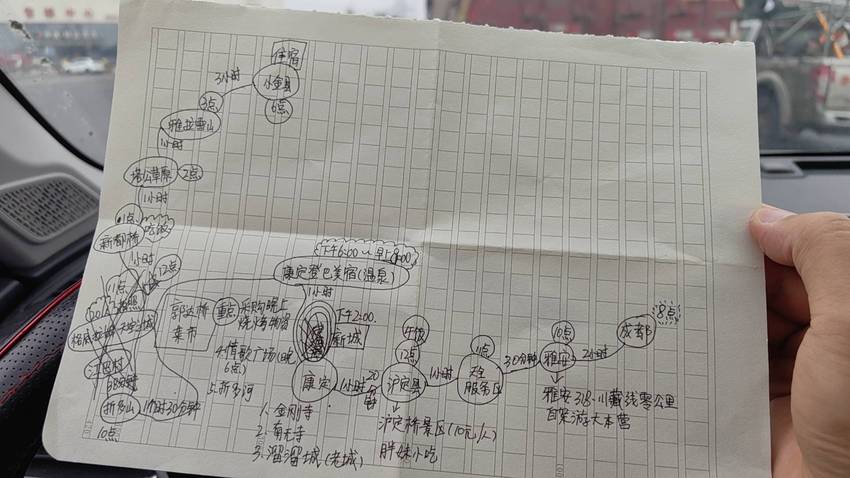 住宿
小金县
6点
3小时
3点
雅拉雪山
1小时
塔公草原
2点
1小时
1点
新都桥
吃饭
1小时
12点
11点
格底拉姆天空之城
江巴村
38分钟
折多山
10点
1小时30分钟
下午6:00~早上8:00
康定登巴美宿(温泉)
1小时
下午2:00
新城
郭达桥
菜市
重点
采购晚上
烧烤物资
4.情歌广场(晚
6点)
5.折多河
康定
1.金刚寺
2.南无寺
3.溜溜城(老城)
1小时20
分钟
午饭
12点
泸定县
泸定桥景区(10元/人)
胖妹小吃
1小时
11点
天全
服务区
30分钟
10点
雅安
雅安318·川藏线零公里
自驾游大本营
2小时
成都
8点